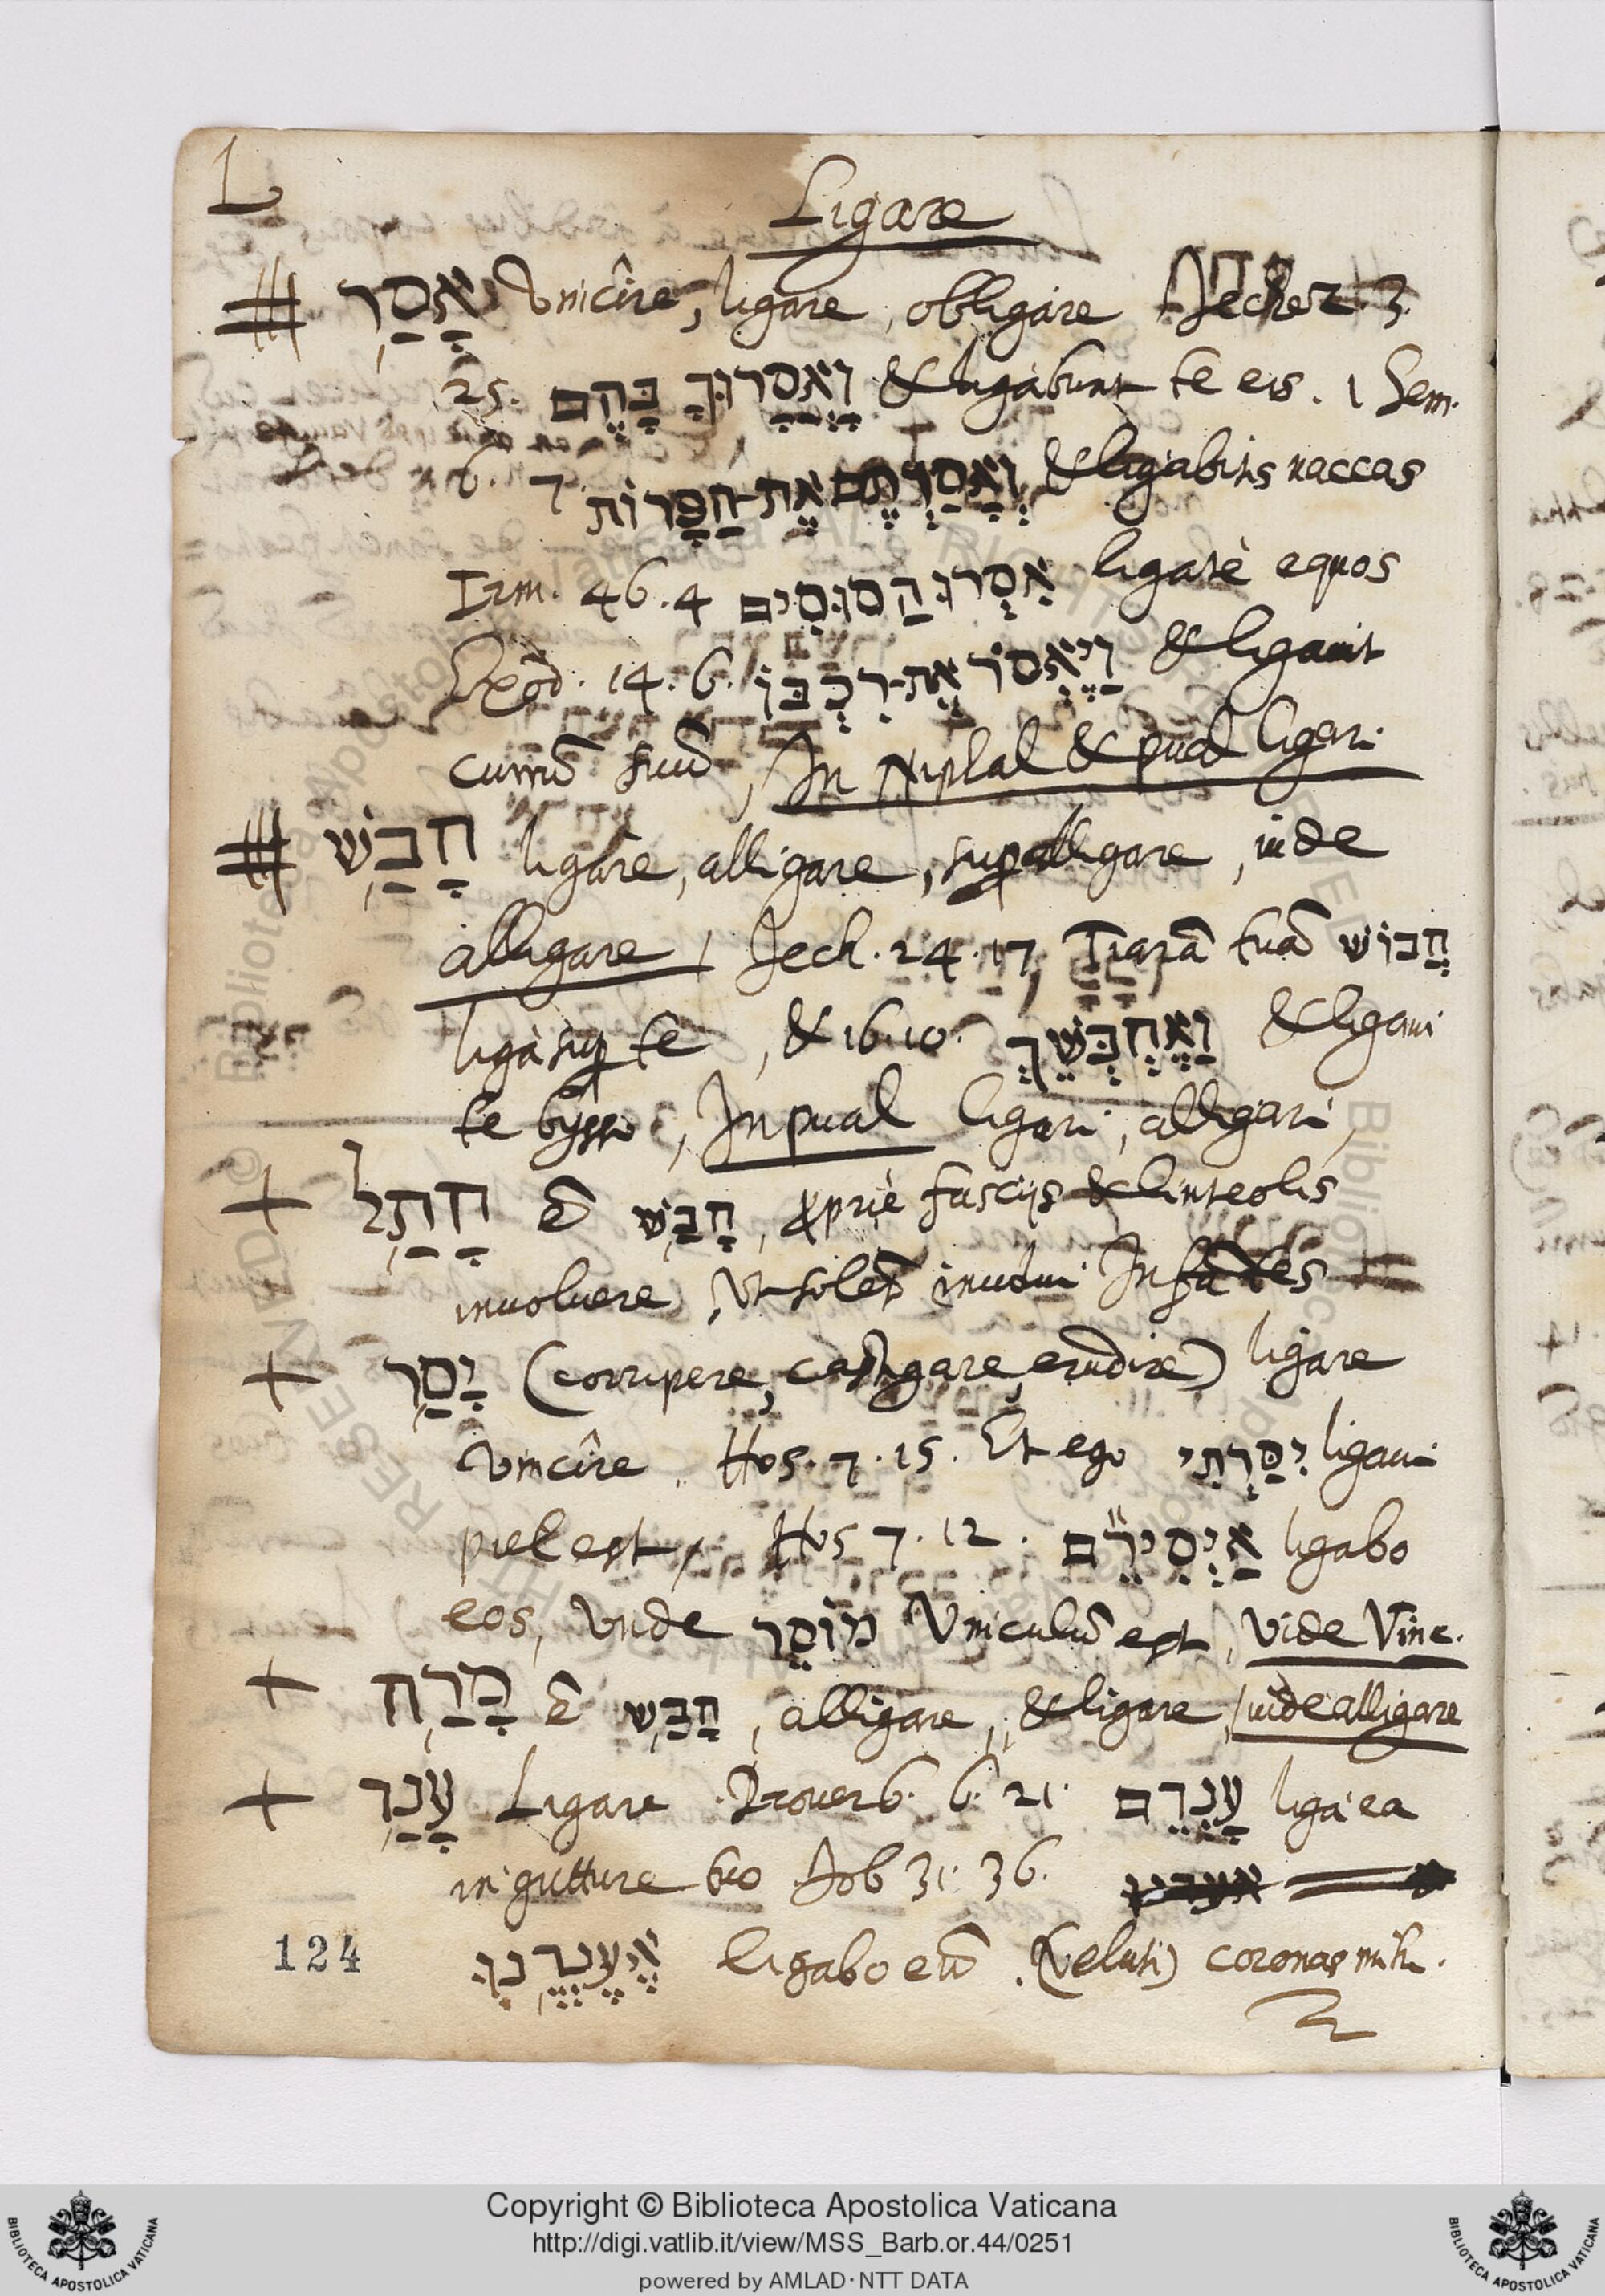 L
Ligare
אָסַר Vincîre, ligare, obligare Jechez. 3.
25. וַאֲסָרוּךָ בָּהֶם & ligabunt te eis. 1 Sem.
6. 7. וַאֲסַרְתֶּם אֶת־הַפָּרוֹת & ligabitis vaccas
Irm. 46.4 אִסְרוּ הַסּוּסִים ligate equos
Exod. 14.6. וַיֶּאְסֹר אֶת־רִכְבּוֹ & ligauit
currũ suũ, In Niphal & pual ligari
חָבַשׁ ligare, alligare, supalligare, uide
alligare, Jech. 24.17, Tiarã tuã חֲבוֹשׁ
liga sup te, & 16.10. וָאֶחְבְּשֵׁךְ & ligaui
te bysso, In pual ligari, alligari,
חָתַל ẽ חָבַשׁ, pprie fascijs & linteolis
inuoluere, Vt solẽt inuolui Infãtes
יָסַר (corripere, castigare, erudire) ligare
Vincîre. Hos. 7.15. Et ego יִסַּרְתִּי ligaui
piel est, Hos 7.12. אַיְסִירֵם ligabo
eos, Vnde מוֹסֵר Vinculũ est, Vide Vinc.
מָרַח ẽ חָבַשׁ, alligare, & ligare, uide alligare
עָנַד Ligare. Prouerb. 6. 21. עָנְדֵם liga ea
in gutture tuo Job 31. 36.
אֶעֶנְדֶנּוּ ligabo eũ (veluti) coronas mihi.
124
Copyright © Biblioteca Apostolica Vaticana
http://digi.vatlib.it/view/MSS_Barb.or.44/0251
powered by AMLAD·NTT DATA